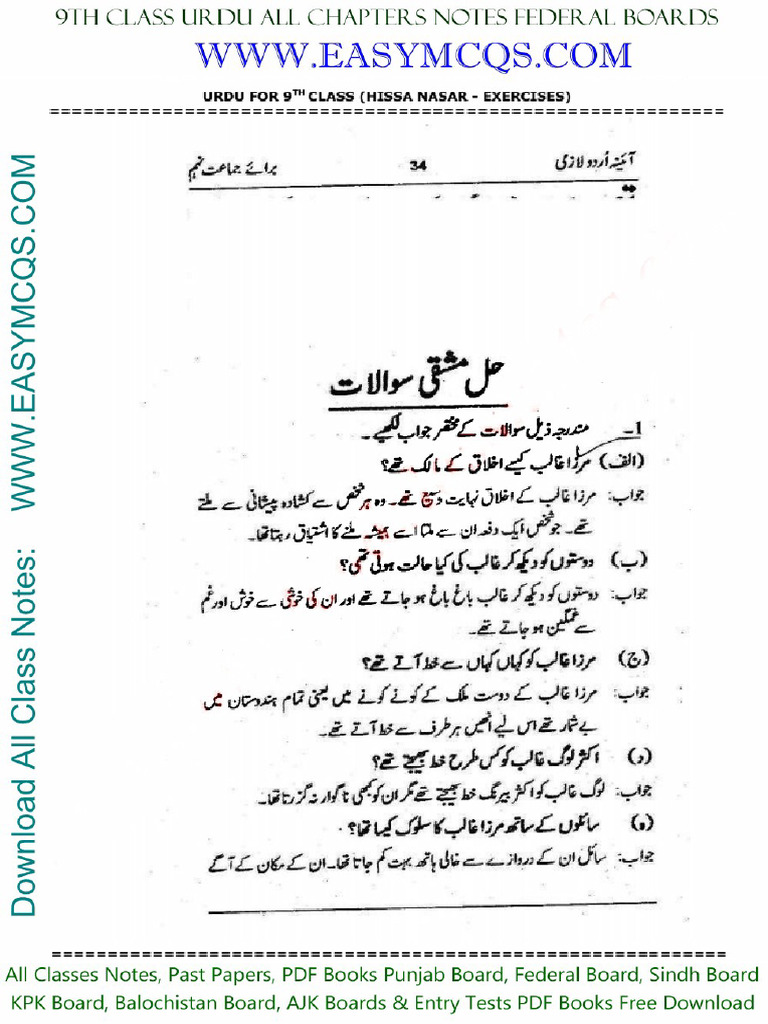 9TH CLASS URDU ALL CHAPTERS NOTES FEDERAL BOARDS
WWW.EASYMCQS.COM
URDU FOR 9TH CLASS (HISSA NASAR - EXERCISES)
Download All Class Notes: WWW.EASYMCQS.COM
آئینہ اُردو لازمی 34 برائے جماعت نہم
حل مشقی سوالات
1- مندرجہ ذیل سوالات کے مختصر جواب لکھیے۔
(الف) مرزا غالب کیسے اخلاق کے مالک تھے؟
جواب: مرزا غالب کے اخلاق نہایت وسیع تھے۔ وہ ہر شخص سے کشادہ پیشانی سے ملتے
تھے۔ جو شخص ایک دفعہ ان سے ملتا اسے ہمیشہ ملنے کا اشتیاق رہتا تھا۔
(ب) دوستوں کو دیکھ کر غالب کی کیا حالت ہوتی تھی؟
جواب: دوستوں کو دیکھ کر غالب باغ باغ ہو جاتے تھے اور ان کی خوشی سے خوش اور غم
سے غمگین ہو جاتے تھے۔
(ج) مرزا غالب کو کہاں کہاں سے خط آتے تھے؟
جواب: مرزا غالب کے دوست ملک کے کونے کونے میں یعنی تمام ہندوستان میں
بے شمار تھے اس لیے انھیں ہر طرف سے خط آتے تھے۔
(د) اکثر لوگ غالب کو کس طرح خط بھیجتے تھے؟
جواب: لوگ غالب کو اکثر بیرنگ خط بھیجتے تھے مگر ان کو کبھی ناگوار نہ گزرتا تھا۔
(ہ) سائلوں کے ساتھ مرزا غالب کا سلوک کیسا تھا؟
جواب: سائل ان کے دروازے سے خالی ہاتھ بہت کم جاتا تھا۔ ان کے مکان کے آگے
All Classes Notes, Past Papers, PDF Books Punjab Board, Federal Board, Sindh Board
KPK Board, Balochistan Board, AJK Boards & Entry Tests PDF Books Free Download